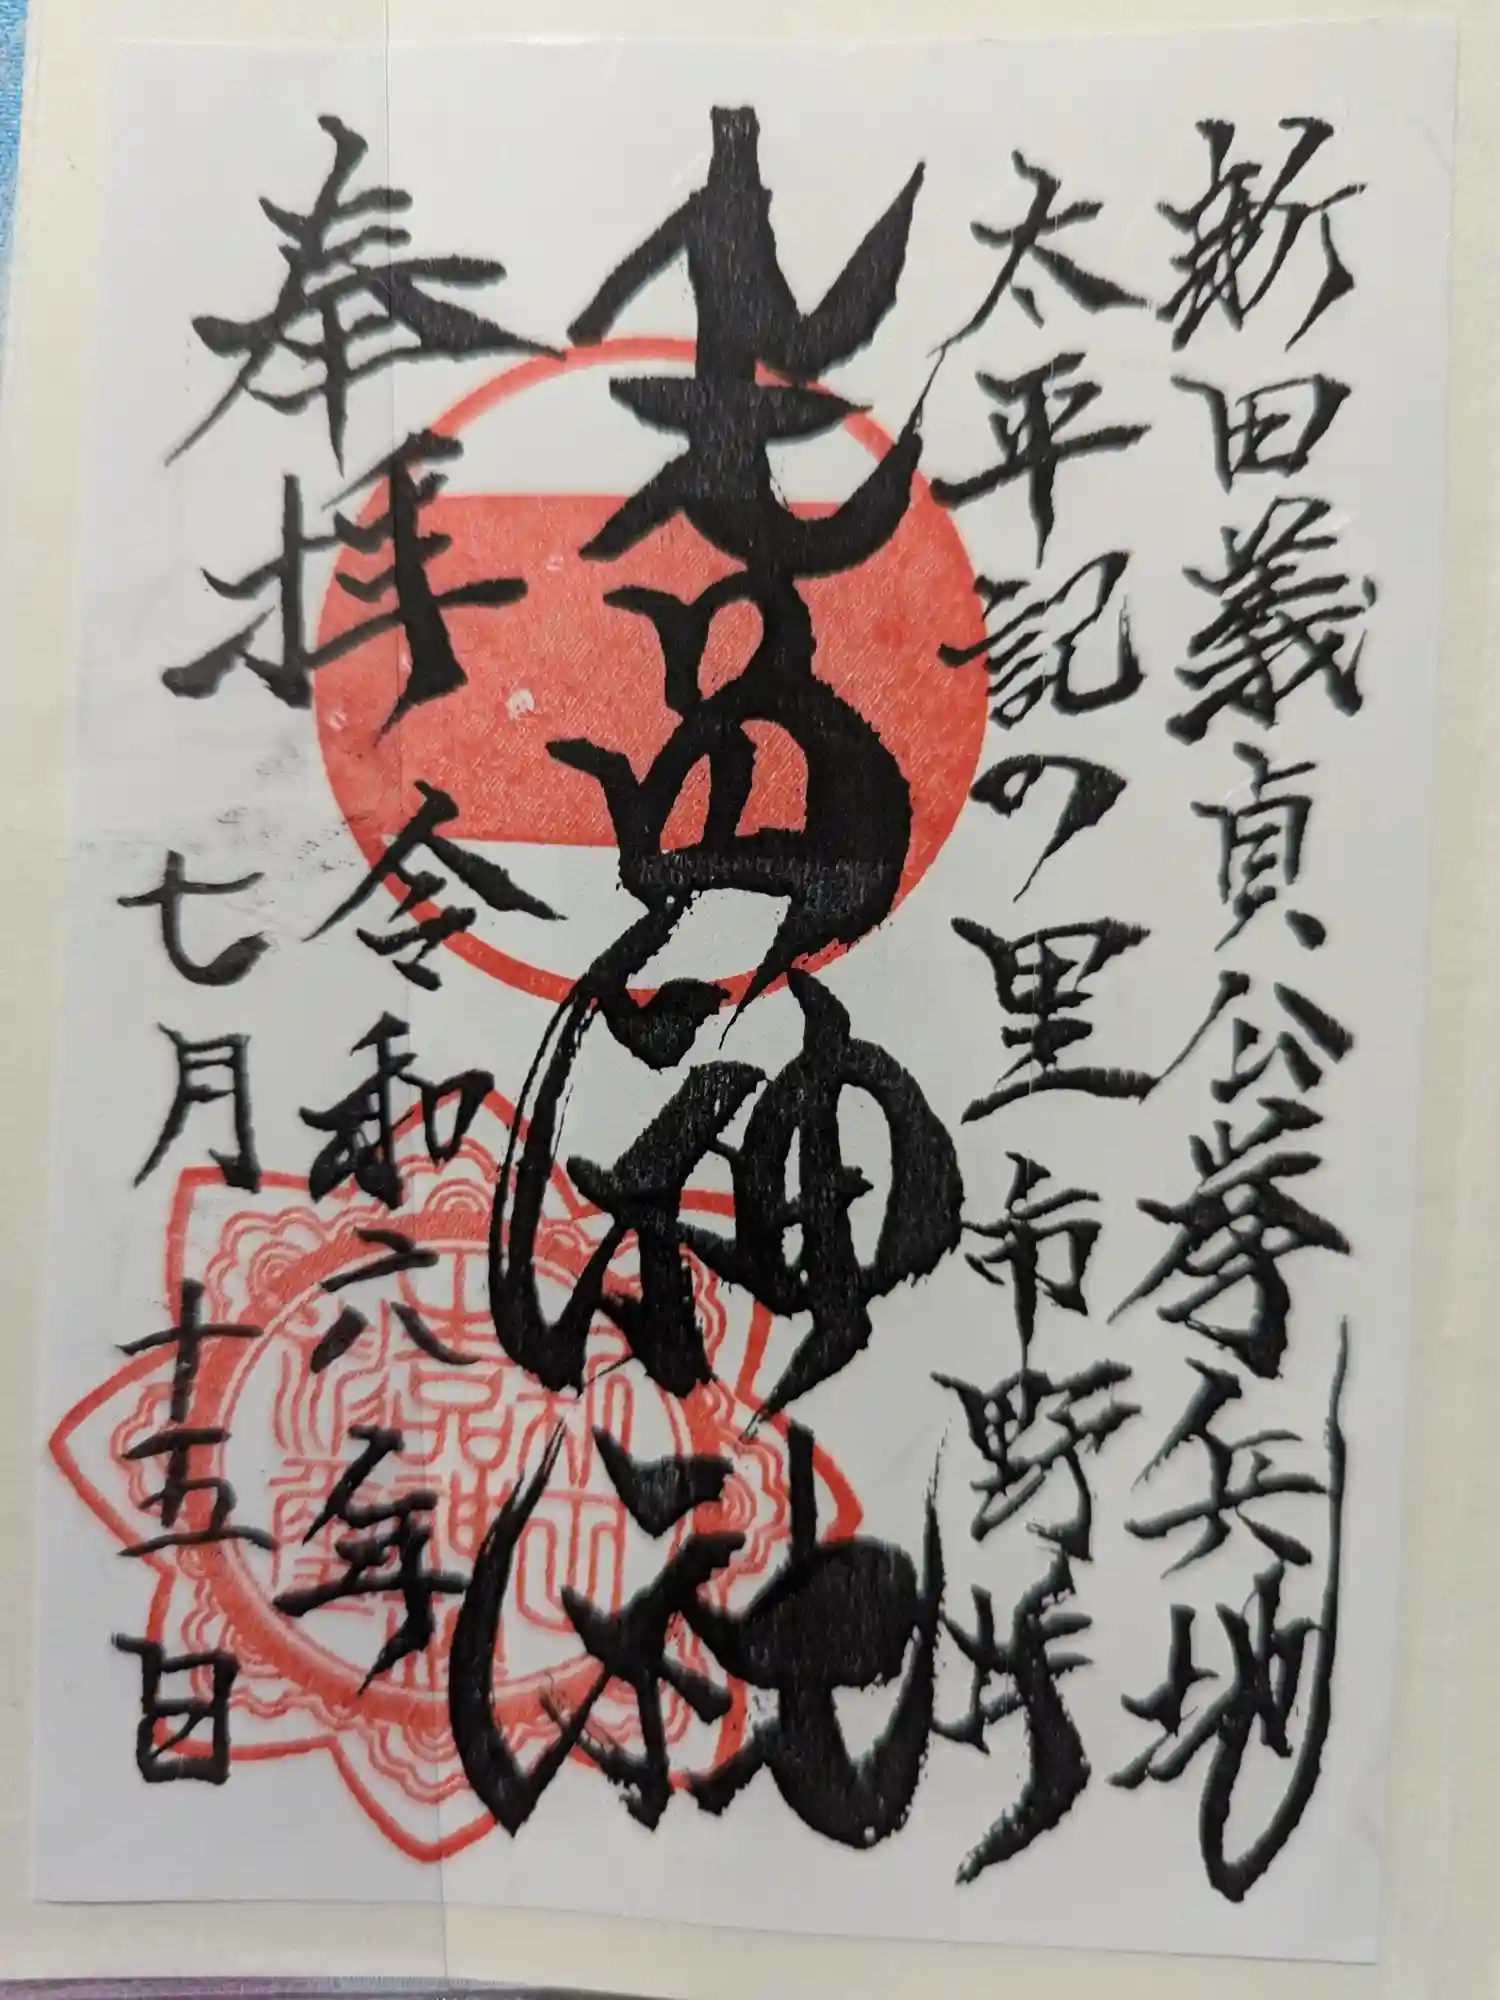 新田義貞公挙兵地
太平記の里 市野井
生品神社
奉拝
令和六年
七月十五日